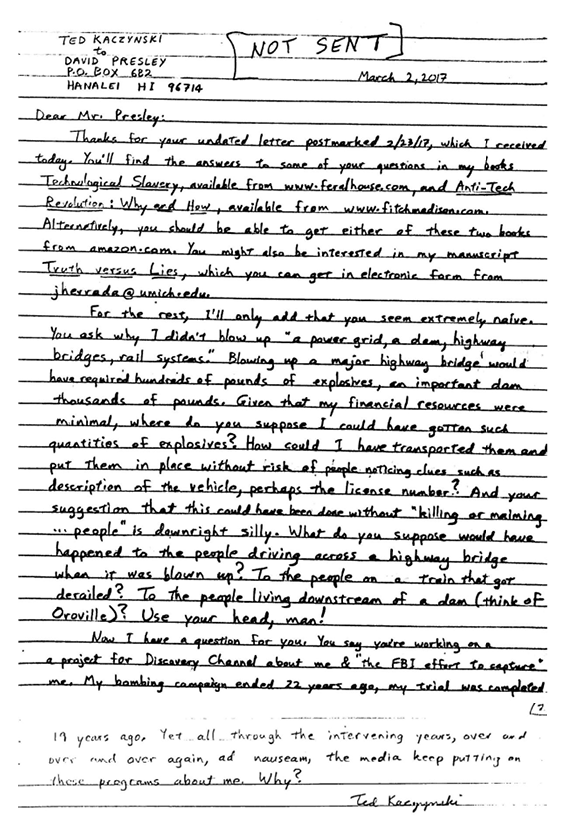 TED KACZYNSKI
to
DAVID PRESLEY
P.O. BOX 682
HANALEI HI 96714
[NOT SENT]
March 2, 2017
Dear Mr. Presley:
Thanks for your undated letter postmarked 2/23/17, which I received
today. You'll find the answers to some of your questions in my books
Technological Slavery, available from www.feralhouse.com, and Anti-Tech
Revolution: Why and How, available from www.fitchmadison.com.
Alternatively, you should be able to get either of these two books
from amazon.com. You might also be interested in my manuscript
Truth versus Lies, which you can get in electronic form from
jherrada@umich.edu.
For the rest, I'll only add that you seem extremely naive.
You ask why I didn't blow up "a power grid, a dam, highway
bridges, rail systems." Blowing up a major highway bridge would
have required hundreds of pounds of explosives, an important dam
thousands of pounds. Given that my financial resources were
minimal, where do you suppose I could have gotten such
quantities of explosives? How could I have transported them and
put them in place without risk of people noticing clues such as
description of the vehicle, perhaps the license number? And your
suggestion that this could have been done without "killing or maiming
... people" is downright silly. What do you suppose would have
happened to the people driving across a highway bridge
when it was blown up? To the people on a train that got
derailed? To the people living downstream of a dam (think of
Oroville)? Use your head, man!
Now I have a question for you. You say you're working on a
a project for Discovery Channel about me & "the FBI effort to capture"
me. My bombing campaign ended 22 years ago, my trial was completed
19 years ago. Yet all through the intervening years, over and
over and over again, ad nauseam, the media keep putting on
these programs about me. Why?
Ted Kaczynski